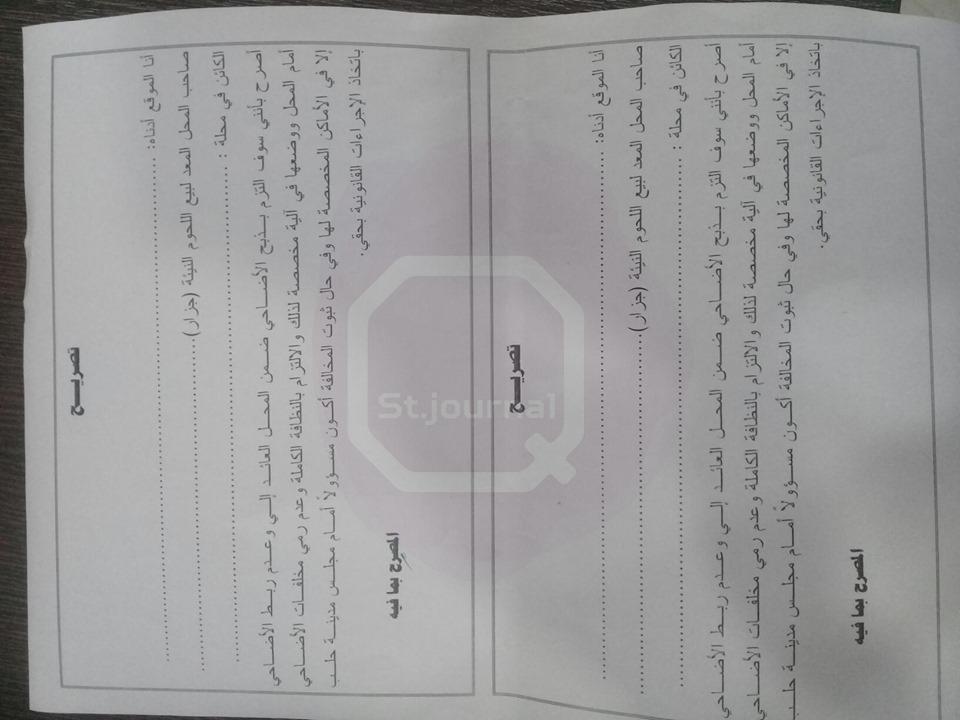 تصريـــح
أنا الموقع أدناه: ........................................
صاحب المحل المعد لبيع اللحوم النيئة (جزار)........................................
الكائن في محلة : ........................................
أصرح بأنني سوف التزم بـذبح الأضـاحي ضـمن المحـل العائـد إلـي وعـدم ربـط الأضـاحي
أمام المحل ووضعها في آلية مخصصة لذلك والالتزام بالنظافة الكاملة وعدم رمي مخلفـات الأضـاحي
إلا في الأماكن المخصصة لها وفي حال ثبوت المخالفة أكـون مسـؤولاً أمـام مجلـس مدينـة حلـب
باتخاذ الإجراءات القانونية بحقي.
المصرح بما فيه
تصريـــح
أنا الموقع أدناه: ........................................
صاحب المحل المعد لبيع اللحوم النيئة (جزار)........................................
الكائن في محلة : ........................................
أصرح بأنني سوف التزم بـذبح الأضـاحي ضـمن المحـل العائـد إلـي وعـدم ربـط الأضـاحي
أمام المحل ووضعها في آلية مخصصة لذلك والالتزام بالنظافة الكاملة وعدم رمي مخلفـات الأضـاحي
إلا في الأماكن المخصصة لها وفي حال ثبوت المخالفة أكـون مسـؤولاً أمـام مجلـس مدينـة حلـب
باتخاذ الإجراءات القانونية بحقي.
المصرح بما فيه
St.journal